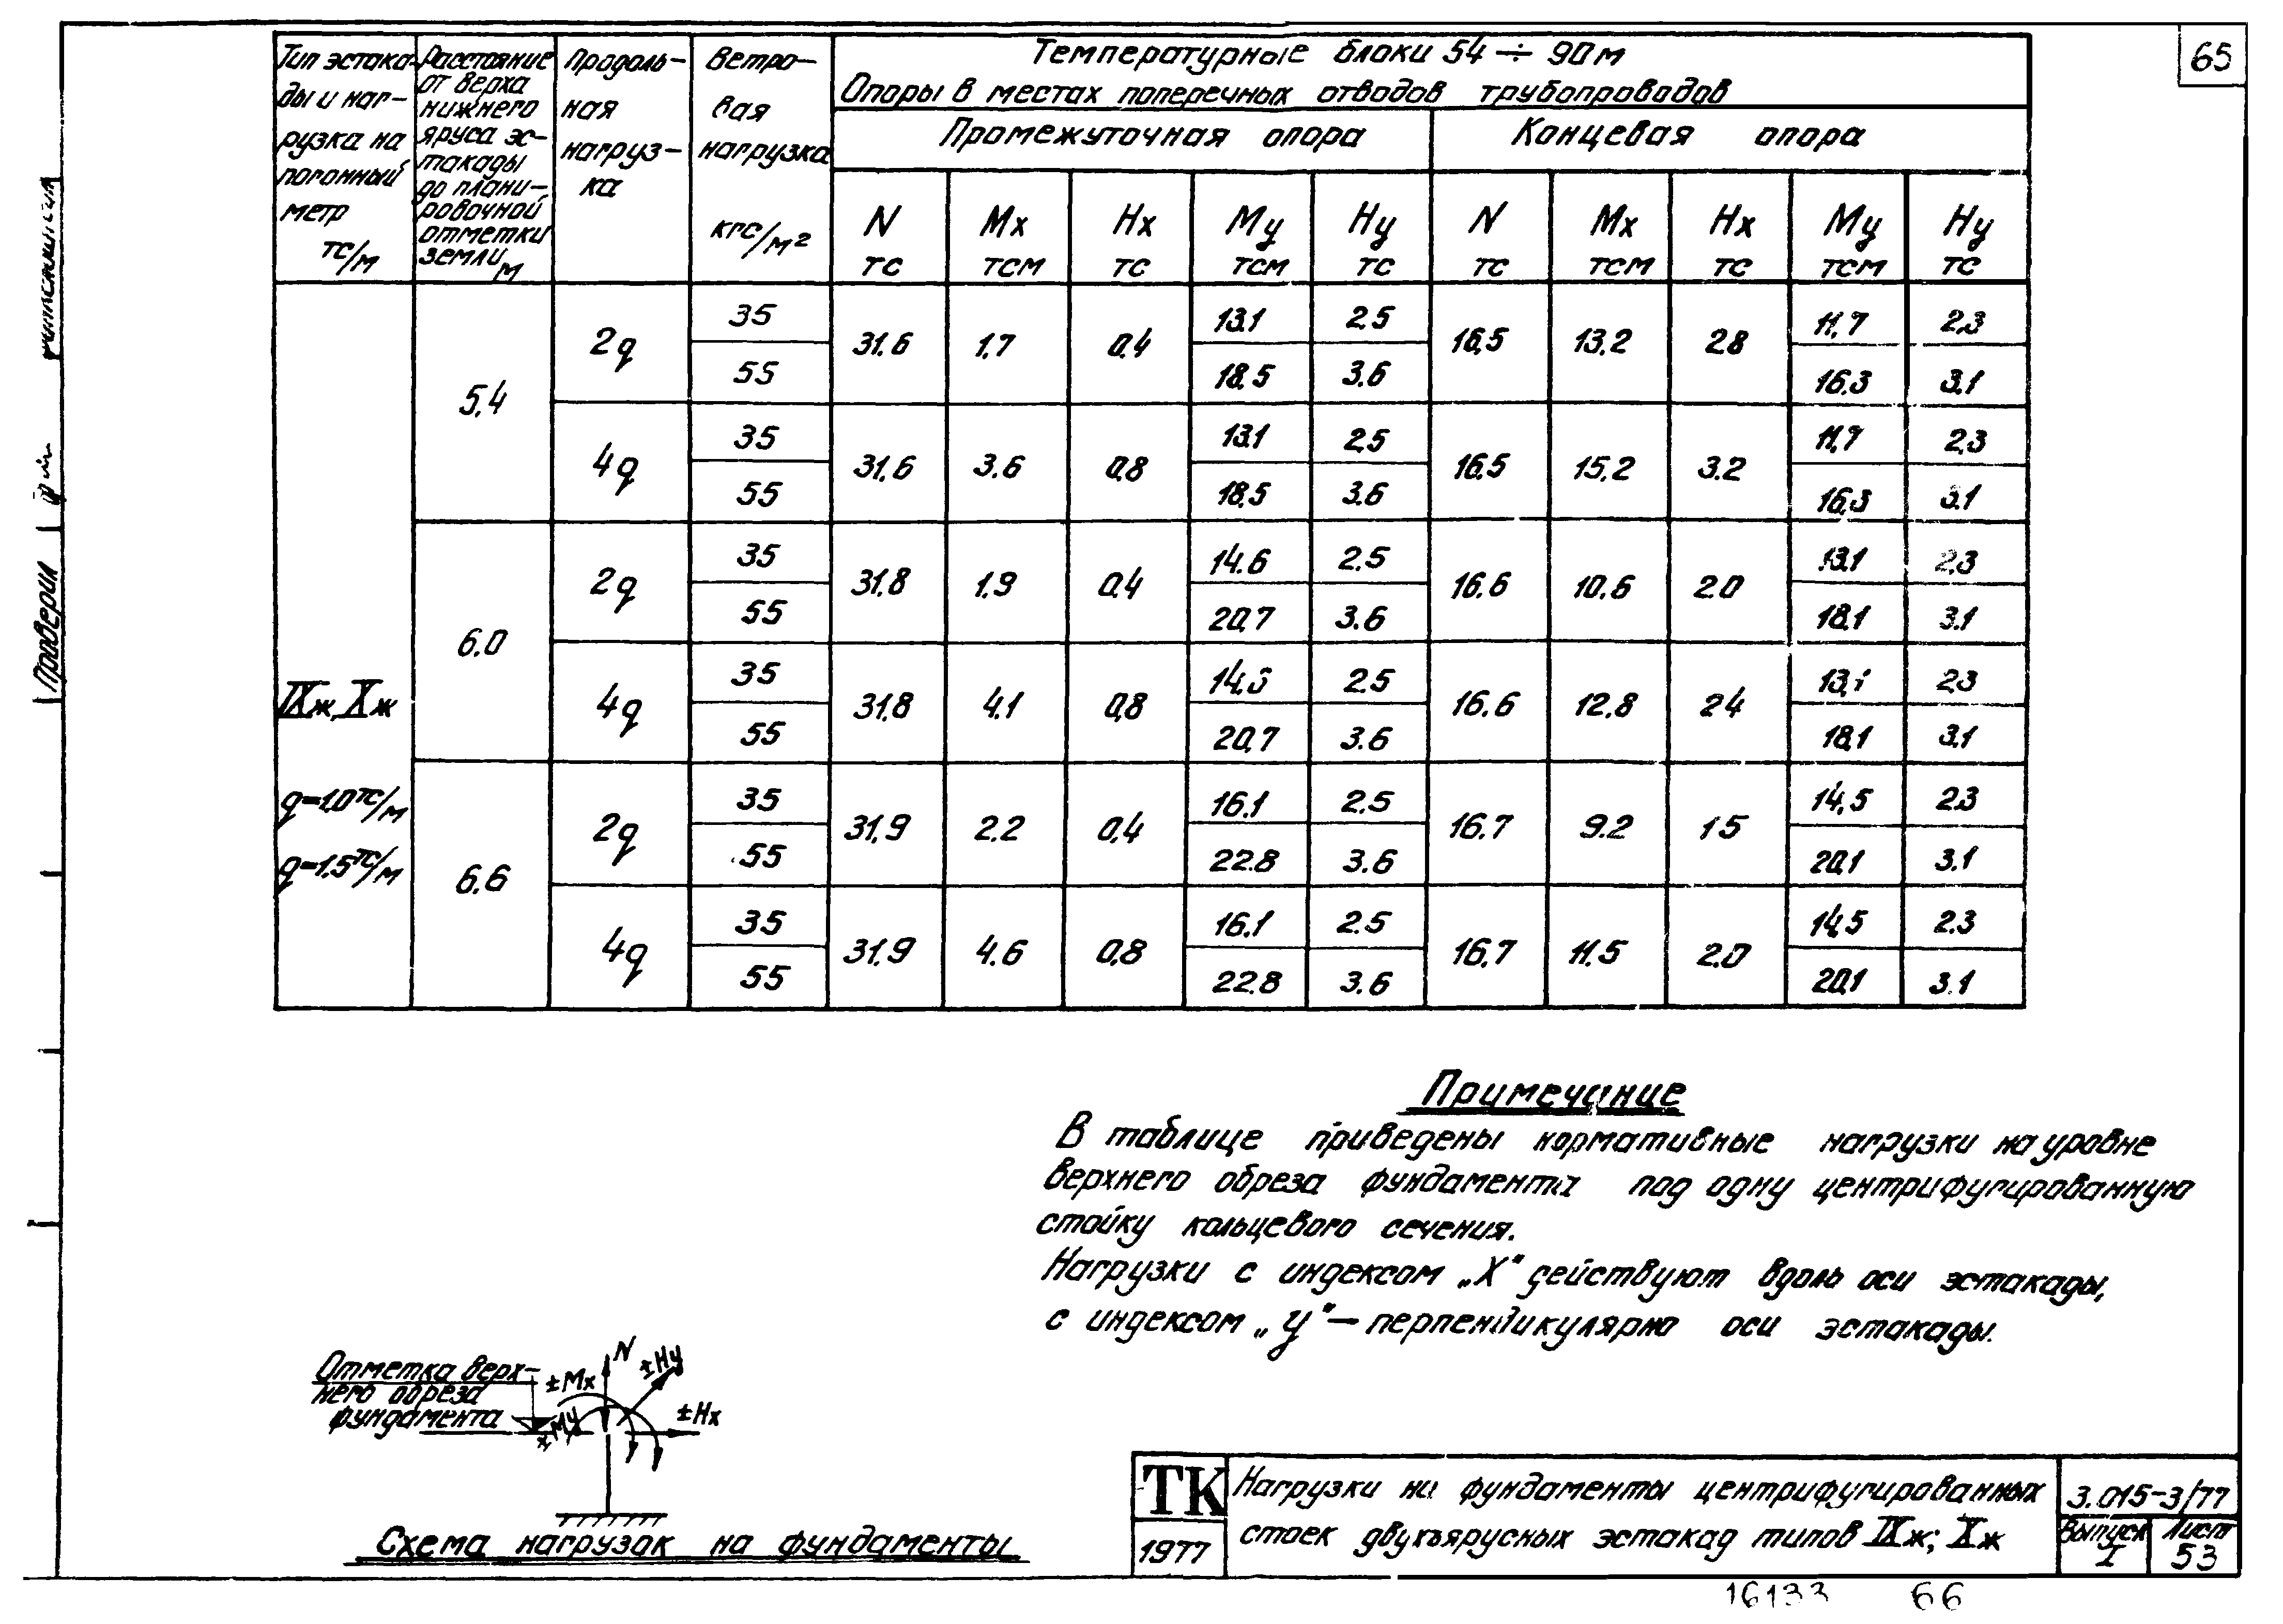 65
Тип эстака-
ды и наг-
рузка на
погонный
метр
тс/м
Расстояние
от верха
нижнего
яруса эс-
такады
до плани-
ровочной
отметки
земли, м
Продоль-
ная
нагруз-
ка
Ветро-
вая
нагрузка
кгс/м²
Температурные блоки 54 ÷ 90м
Опоры в местах поперечных отводов трубопроводов
Промежуточная опора Концевая опора
N Mx Hx My Hy N Mx Hx My Hy
тс тсм тс тсм тс тс тсм тс тсм тс
IXж, Xж
q=1.0 тс/м
q=1.5 тс/м
5.4 2q 35 31.6 1.7 0.4 13.1 2.5 16.5 13.2 2.8 11.7 2.3
55 18.5 3.6 16.3 3.1
4q 35 31.6 3.6 0.8 13.1 2.5 16.5 15.2 3.2 11.7 2.3
55 18.5 3.6 16.3 3.1
6.0 2q 35 31.8 1.9 0.4 14.6 2.5 16.6 10.6 2.0 13.1 2.3
55 20.7 3.6 18.1 3.1
4q 35 31.8 4.1 0.8 14.6 2.5 16.6 12.8 2.4 13.1 2.3
55 20.7 3.6 18.1 3.1
6.6 2q 35 31.9 2.2 0.4 16.1 2.5 16.7 9.2 1.5 14.5 2.3
55 22.8 3.6 20.1 3.1
4q 35 31.9 4.6 0.8 16.1 2.5 16.7 11.5 2.0 14.5 2.3
55 22.8 3.6 20.1 3.1
Проверил
Примечание
В таблице приведены нормативные нагрузки на уровне
верхнего обреза фундамента под одну центрифугированную
стойку кольцевого сечения.
Нагрузки с индексом „X" действуют вдоль оси эстакады,
с индексом „У" — перпендикулярно оси эстакады.
Отметка верх-
него обреза
фундамента
±Mx
N
±Hy
±My
±Hx
Схема нагрузок на фундаменты
ТК
1977
Нагрузки на фундаменты центрифугированных
стоек двухъярусных эстакад типов IXж; Xж
3.015-3/77
Выпуск
I
Лист
53
16133 66